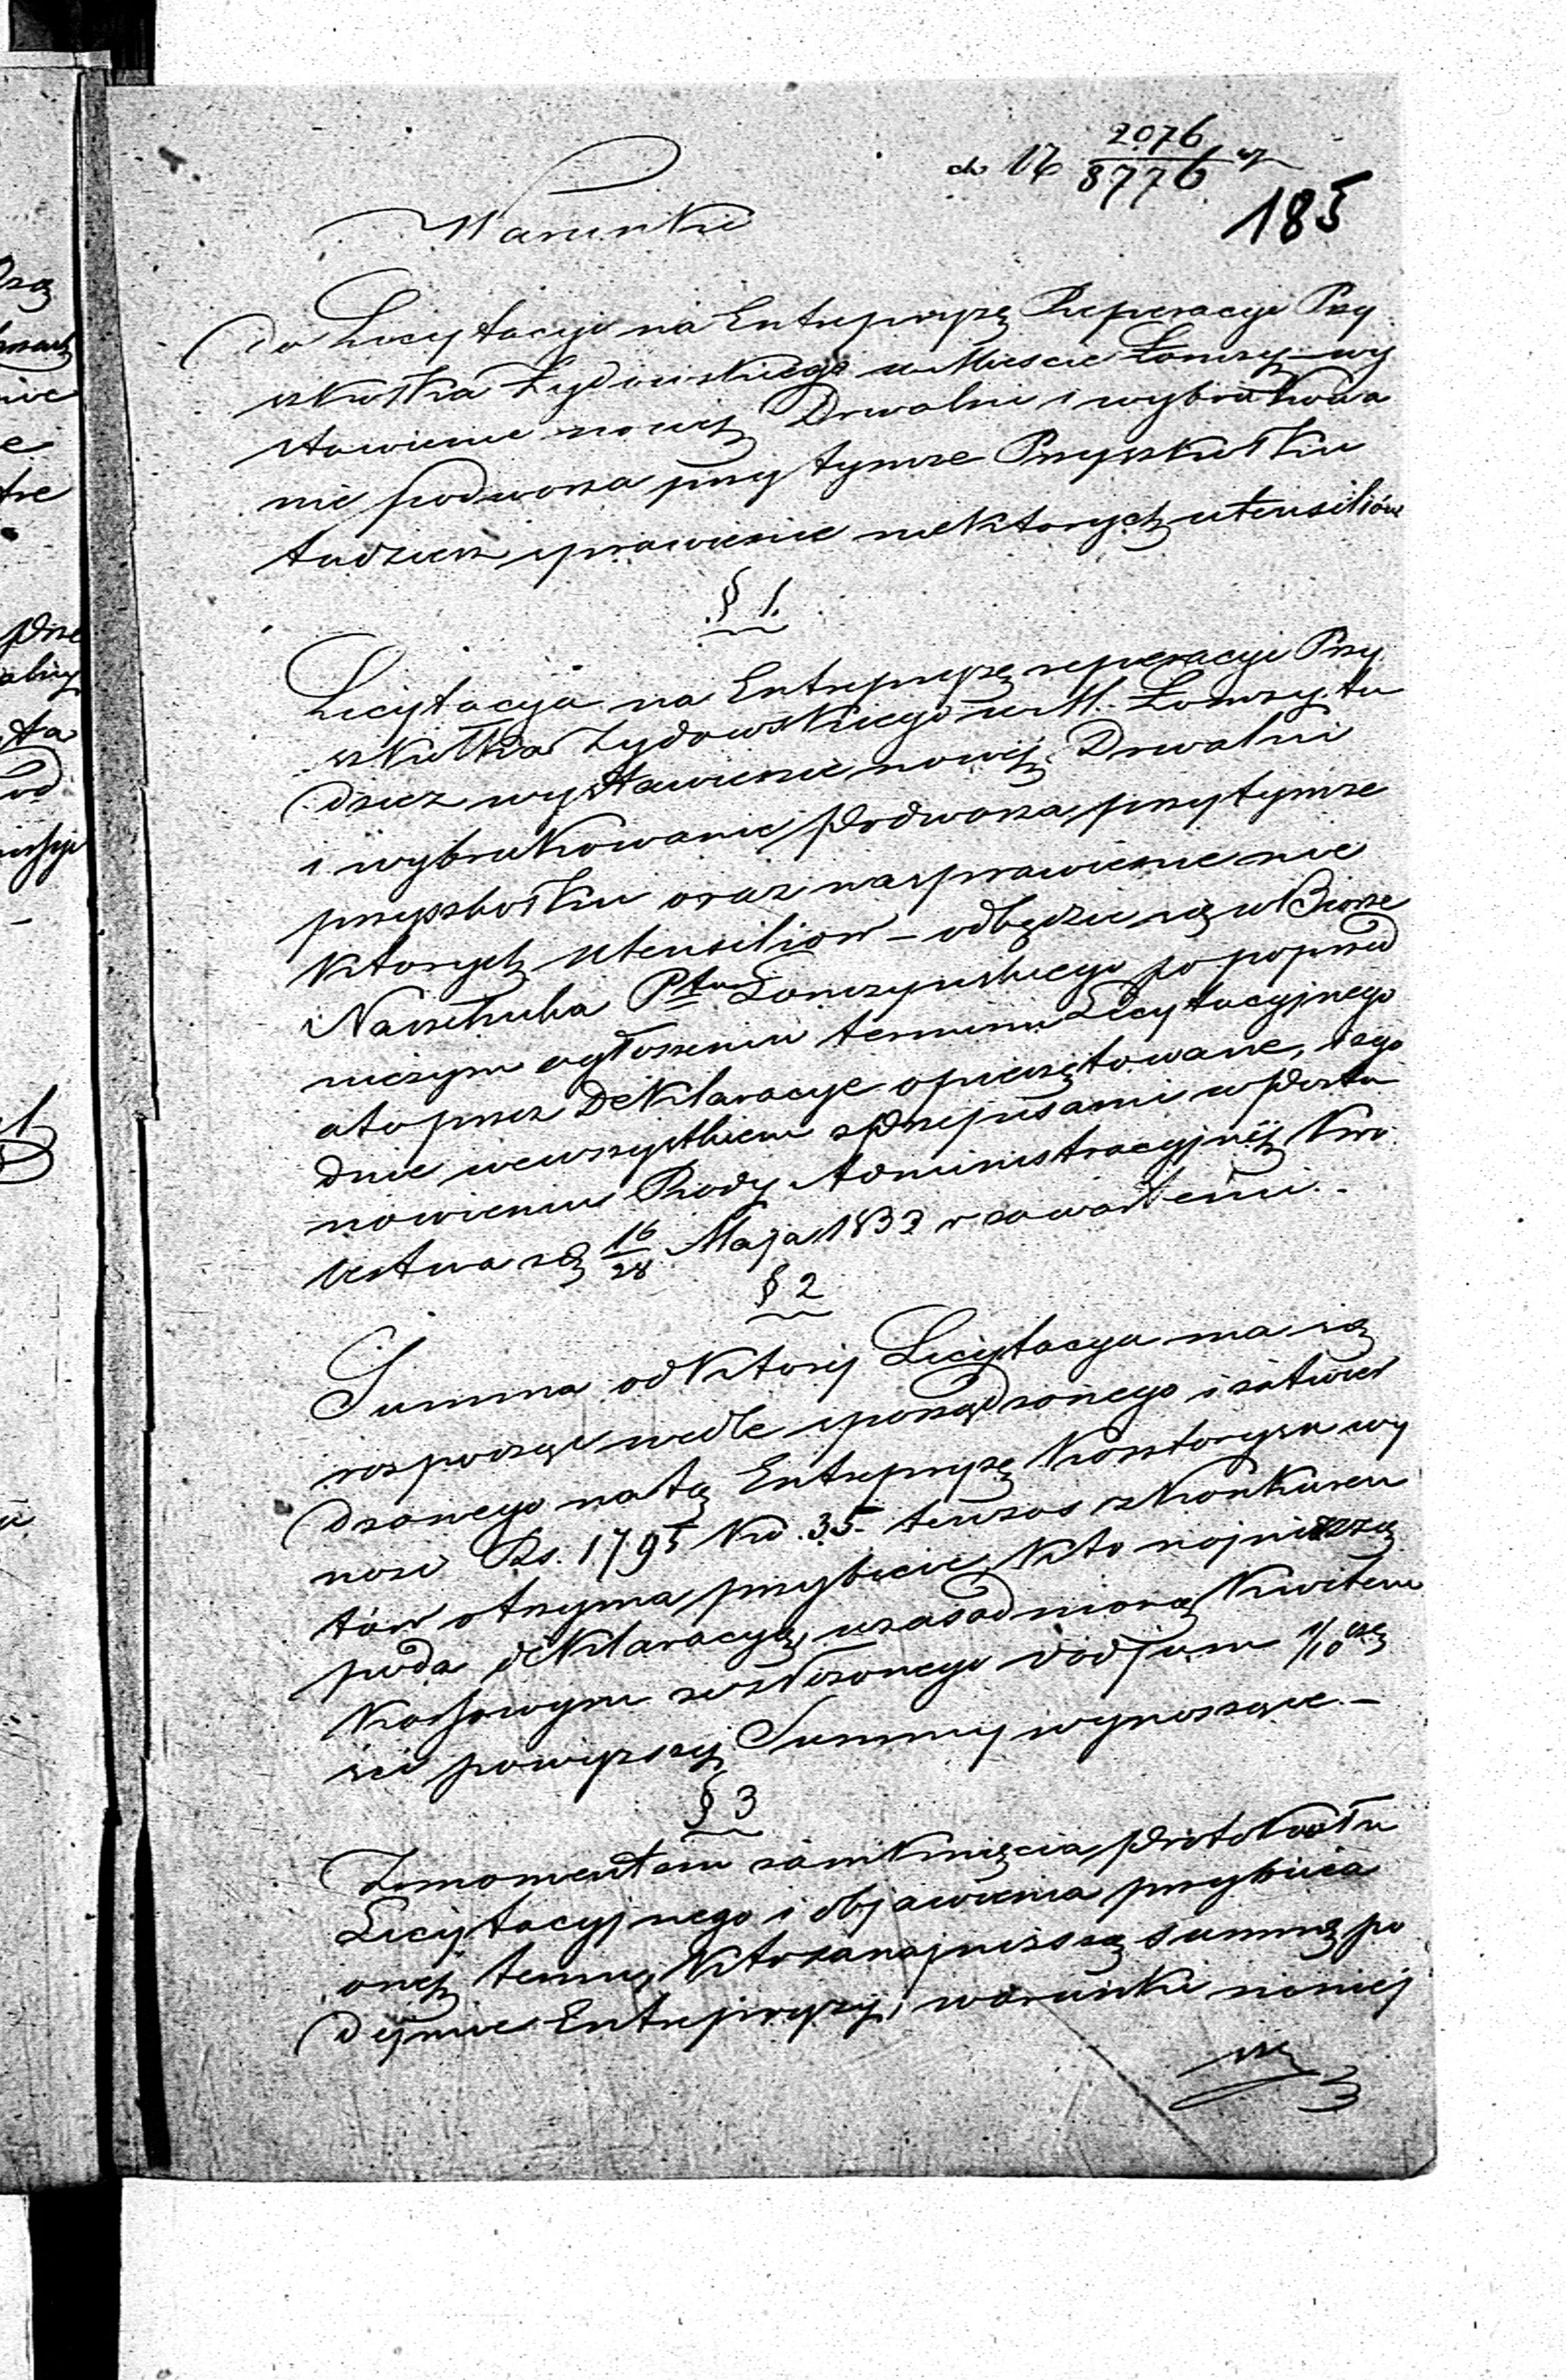 do N 2076/8776
185
Warunki
do Licytacyi na Entrepryzę Reperacyi Przy
szkołka Żydowskiego w Mieście Łomży-wy
stawienie nowej Drwalni i wybrukowa
nie podworza przy tymże Przyszkołku
tudzież sprawienie niektorych utensiliów
§ 1.
Licytacyja na Entrepryzę reperacyi Przy
szkołka Żydowskiego w M. Łomży tu
dzież wystawienie nowej Drwalni
i wybrukowanie Podworza przytymże
przyszkołku oraz na sprawienie nie
ktorych utensiliow – odbędzie się w Biorze
Naczelnika Ptu Łomżyńskiego po poprzed
niczym ogłoszeniu terminu Licytacyjnego
a to przez Deklaracye opieczętowane, zgo
dnie wewszystkiem z Przepisami w Posta
nowieniu Rady Administracyjnej Kró
lestwa z d. 16/28 Maja 1833 r zawartemi. -
§ 2
Summa od ktorej Licytacya ma się
rozpocząć wedle sporządzonego i zatwier
dzonego na tę Entrepryzę Kosztorysu wy
nosi Rs. 1795 kо. 35. tenzas z konkuren
tów otrzyma przybicie, kto najniższą
poda deklaracyę, uzasadnioną Kwitem
Kassowym złożonego vadjum 1/10 czę
ści powyższej Summy wynoszące. –
§ 3
Z momentem zamknięcia Protokołu
Licytacyjnego i objawienia przybicia
onej temu, kto za najniższą summę po
dejmie Entrepryzy, warunki niniej